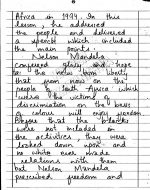 Africa in 1994. In this
lesson, he addressed
the people and delivered
a speech which included
the main points.
Nelson Mandela
conferred glory and hope
for the
that from now on the
people of South Africa which
were the victims of
discrimination on the basis
of colour will enjoy freedom.
Because that the
was not included in
the activities, they were
looked down upon and
no white ever made
relations with them
but Nelson Mandela
prescribed freedom and